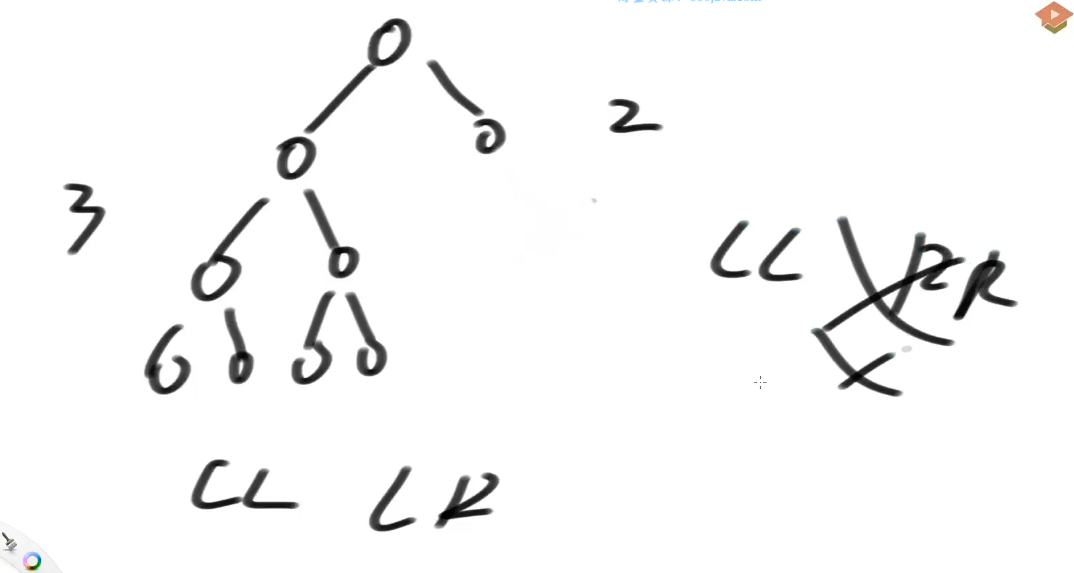 2
3
LL RR
LL LR